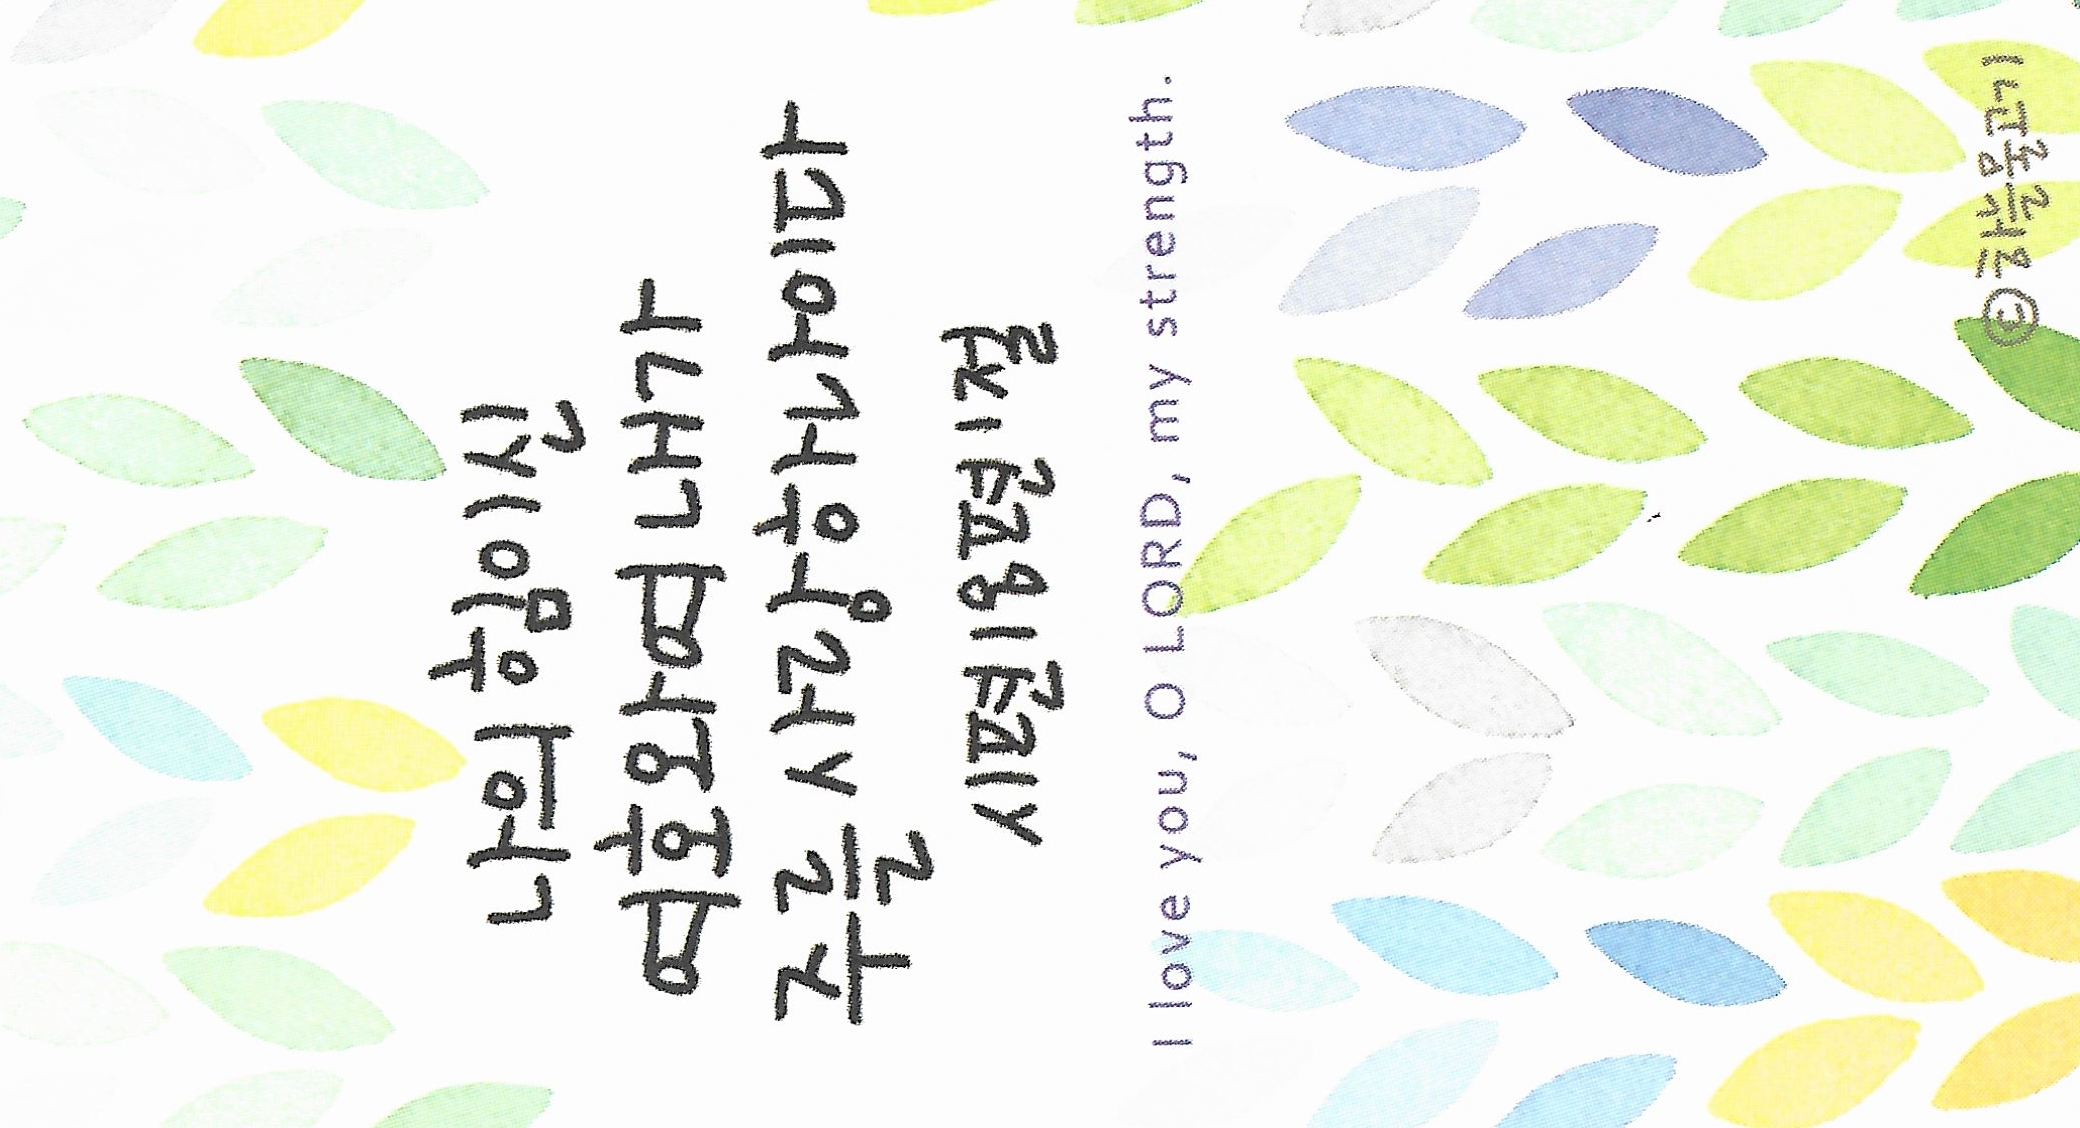 나의 힘이신
여호와여 내가
주를 사랑하나이다
시편 18편 1절
I love you, O LORD, my strength.
© 하늘물고기